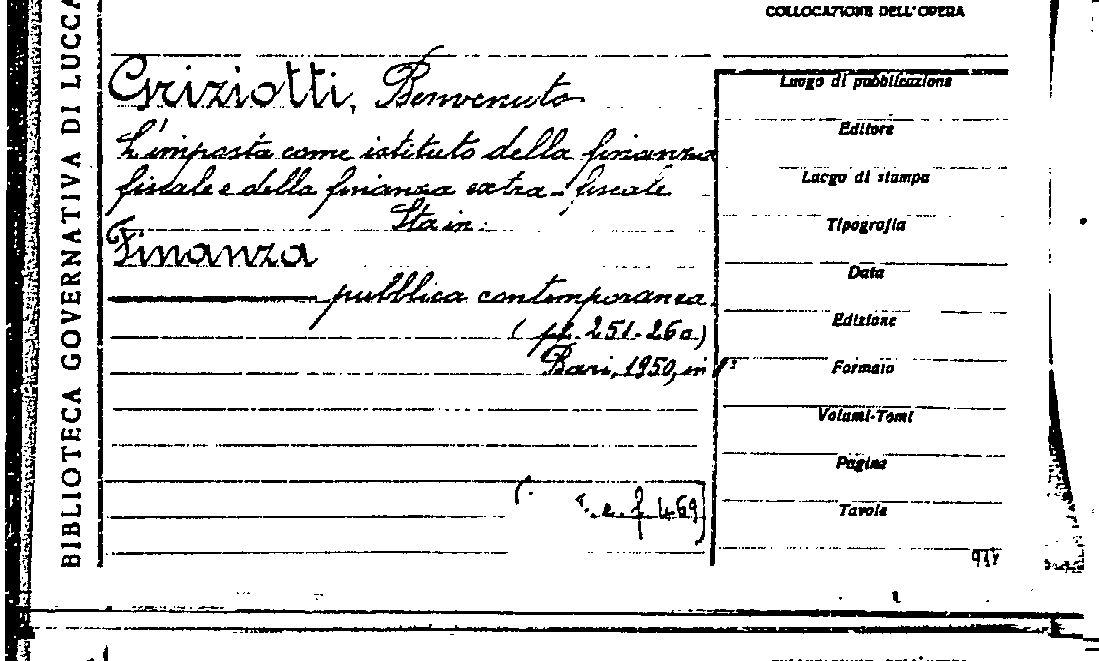 BIBLIOTECA GOVERNATIVA DI LUCCA
COLLOCAZIONE DELL'OPERA
Griziotti, Benvenuto
L'imposta come istituto della finanza
fiscale e della finanza extra-fiscale
Sta in:
Finanza
pubblica contemporanea.
(pp. 251-260)
Bari, 1950, in
469
Luogo di pubblicazione
Editore
Luogo di stampa
Tipografia
Data
Edizione
Formato
Volumi-Tomi
Pagine
Tavole